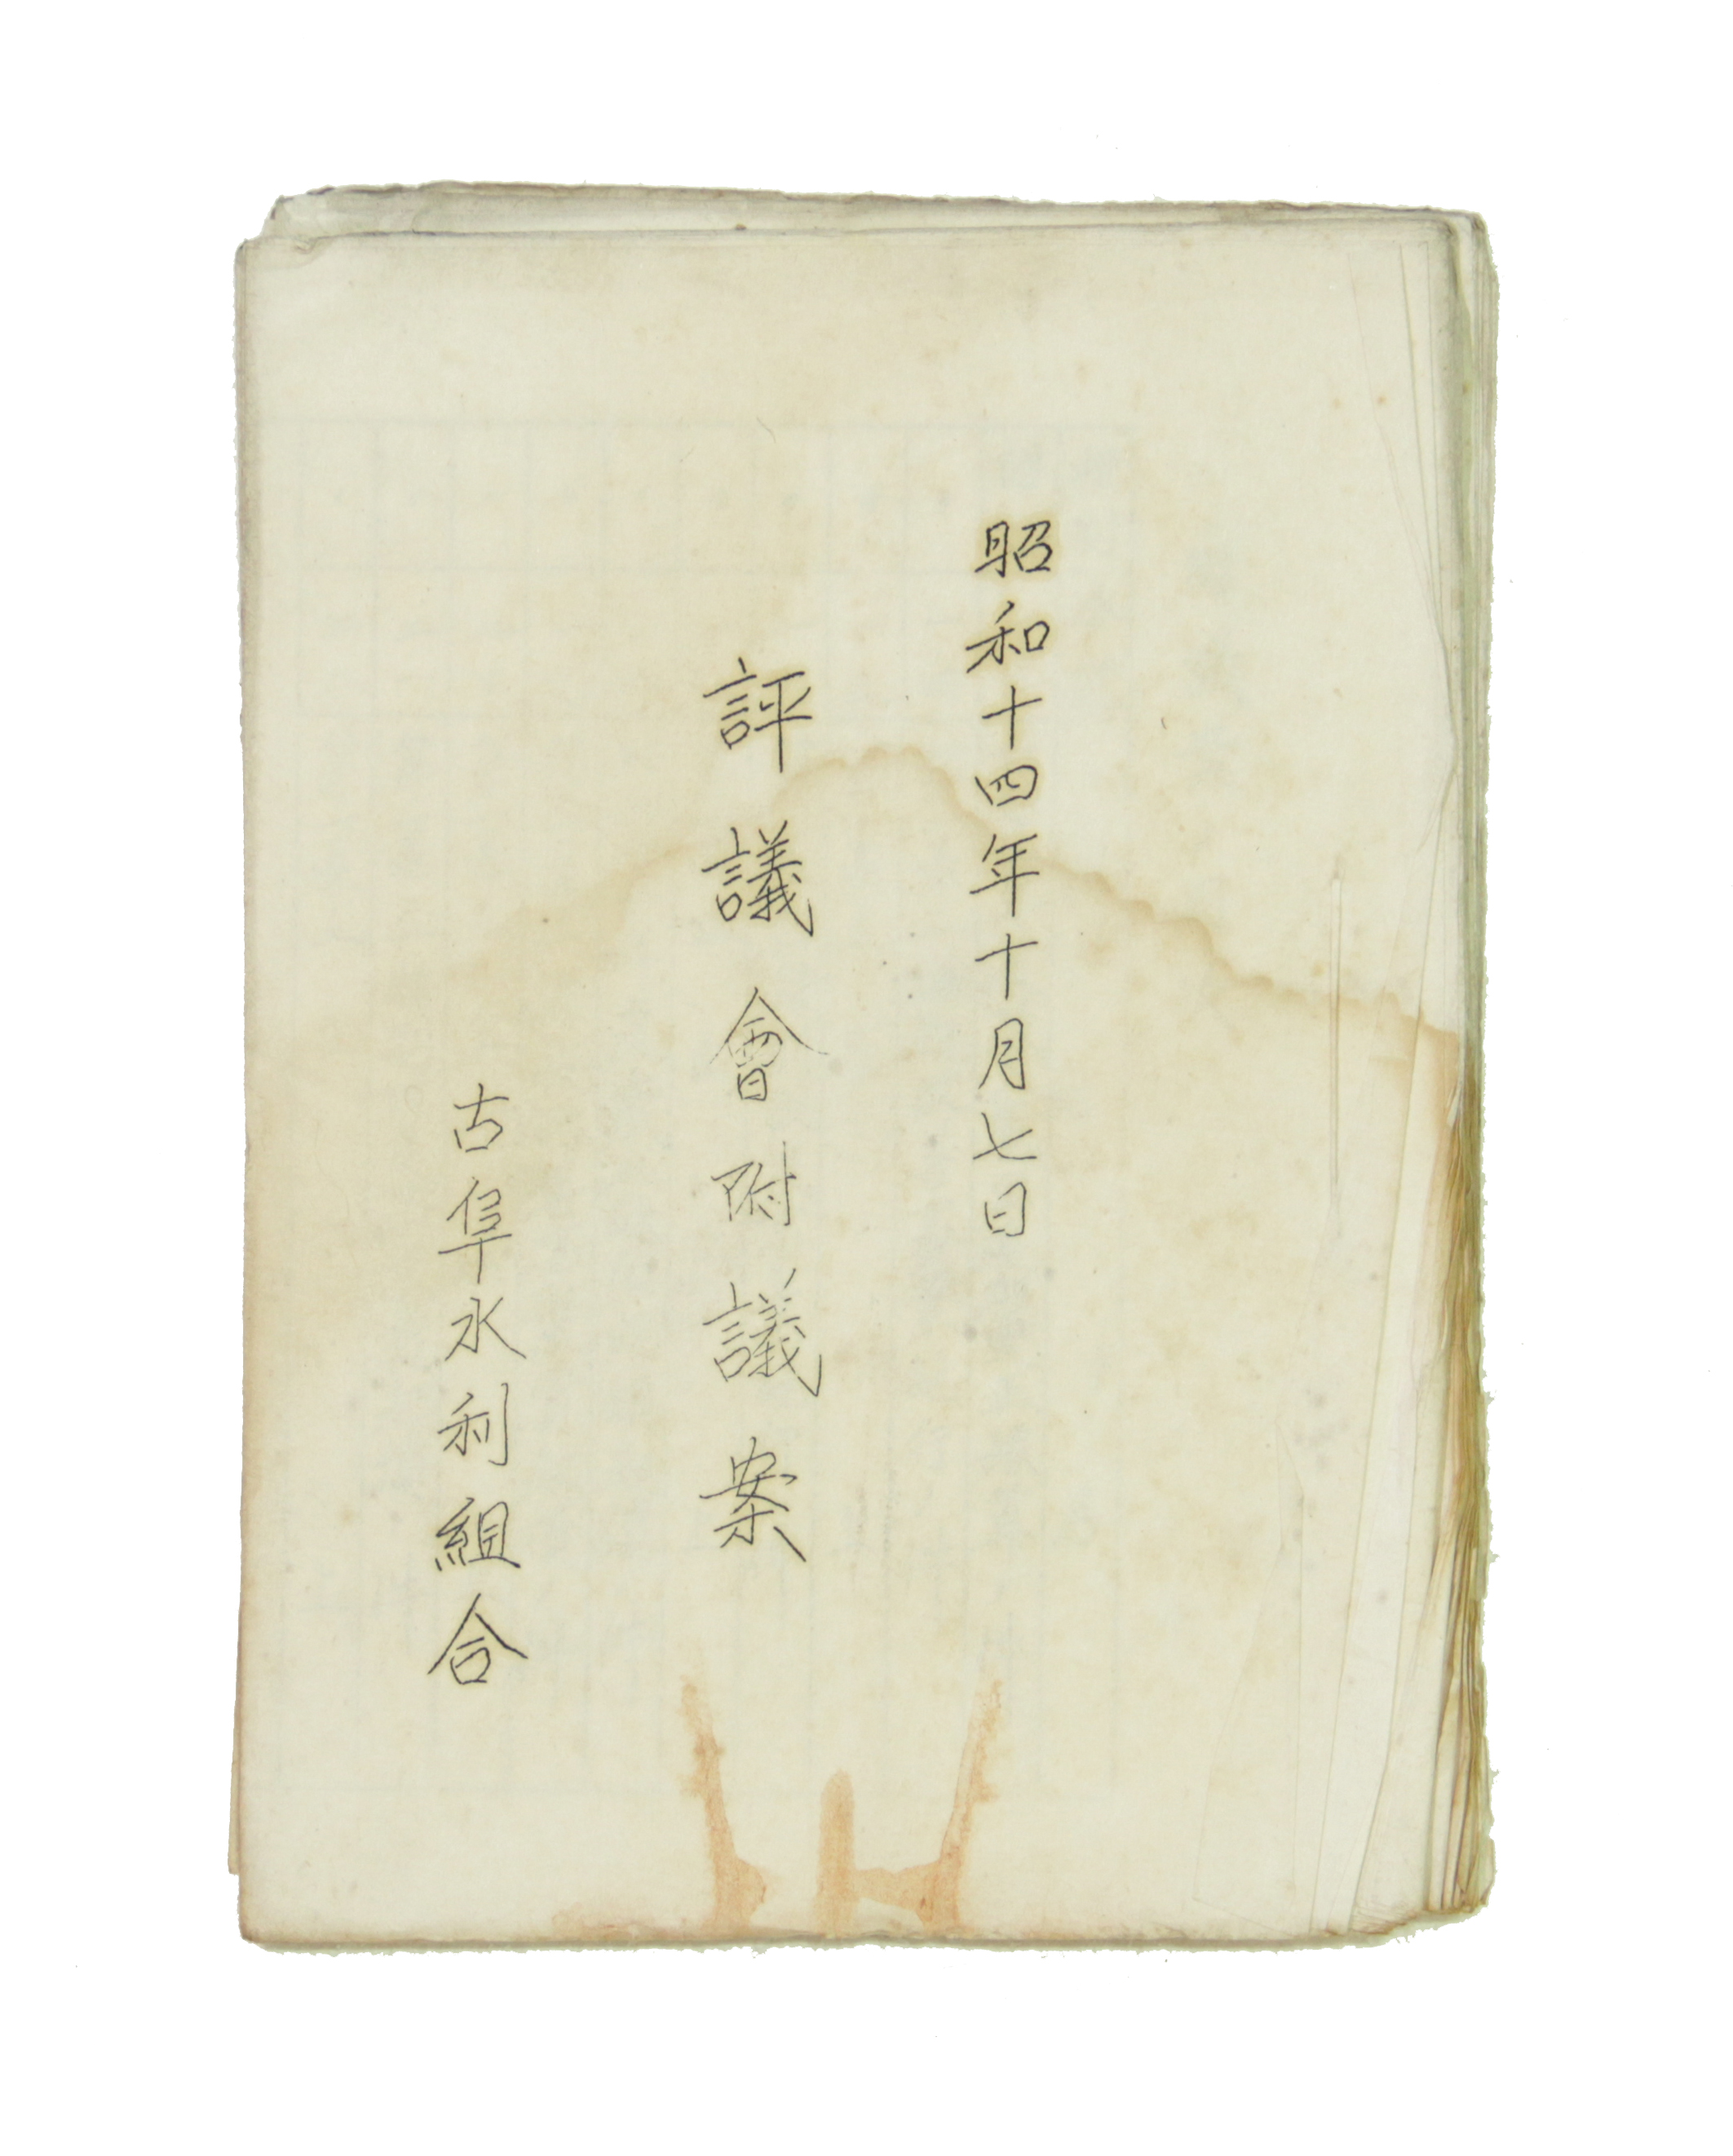 昭和十四年十月七日
評議會附議案
古阜水利組合